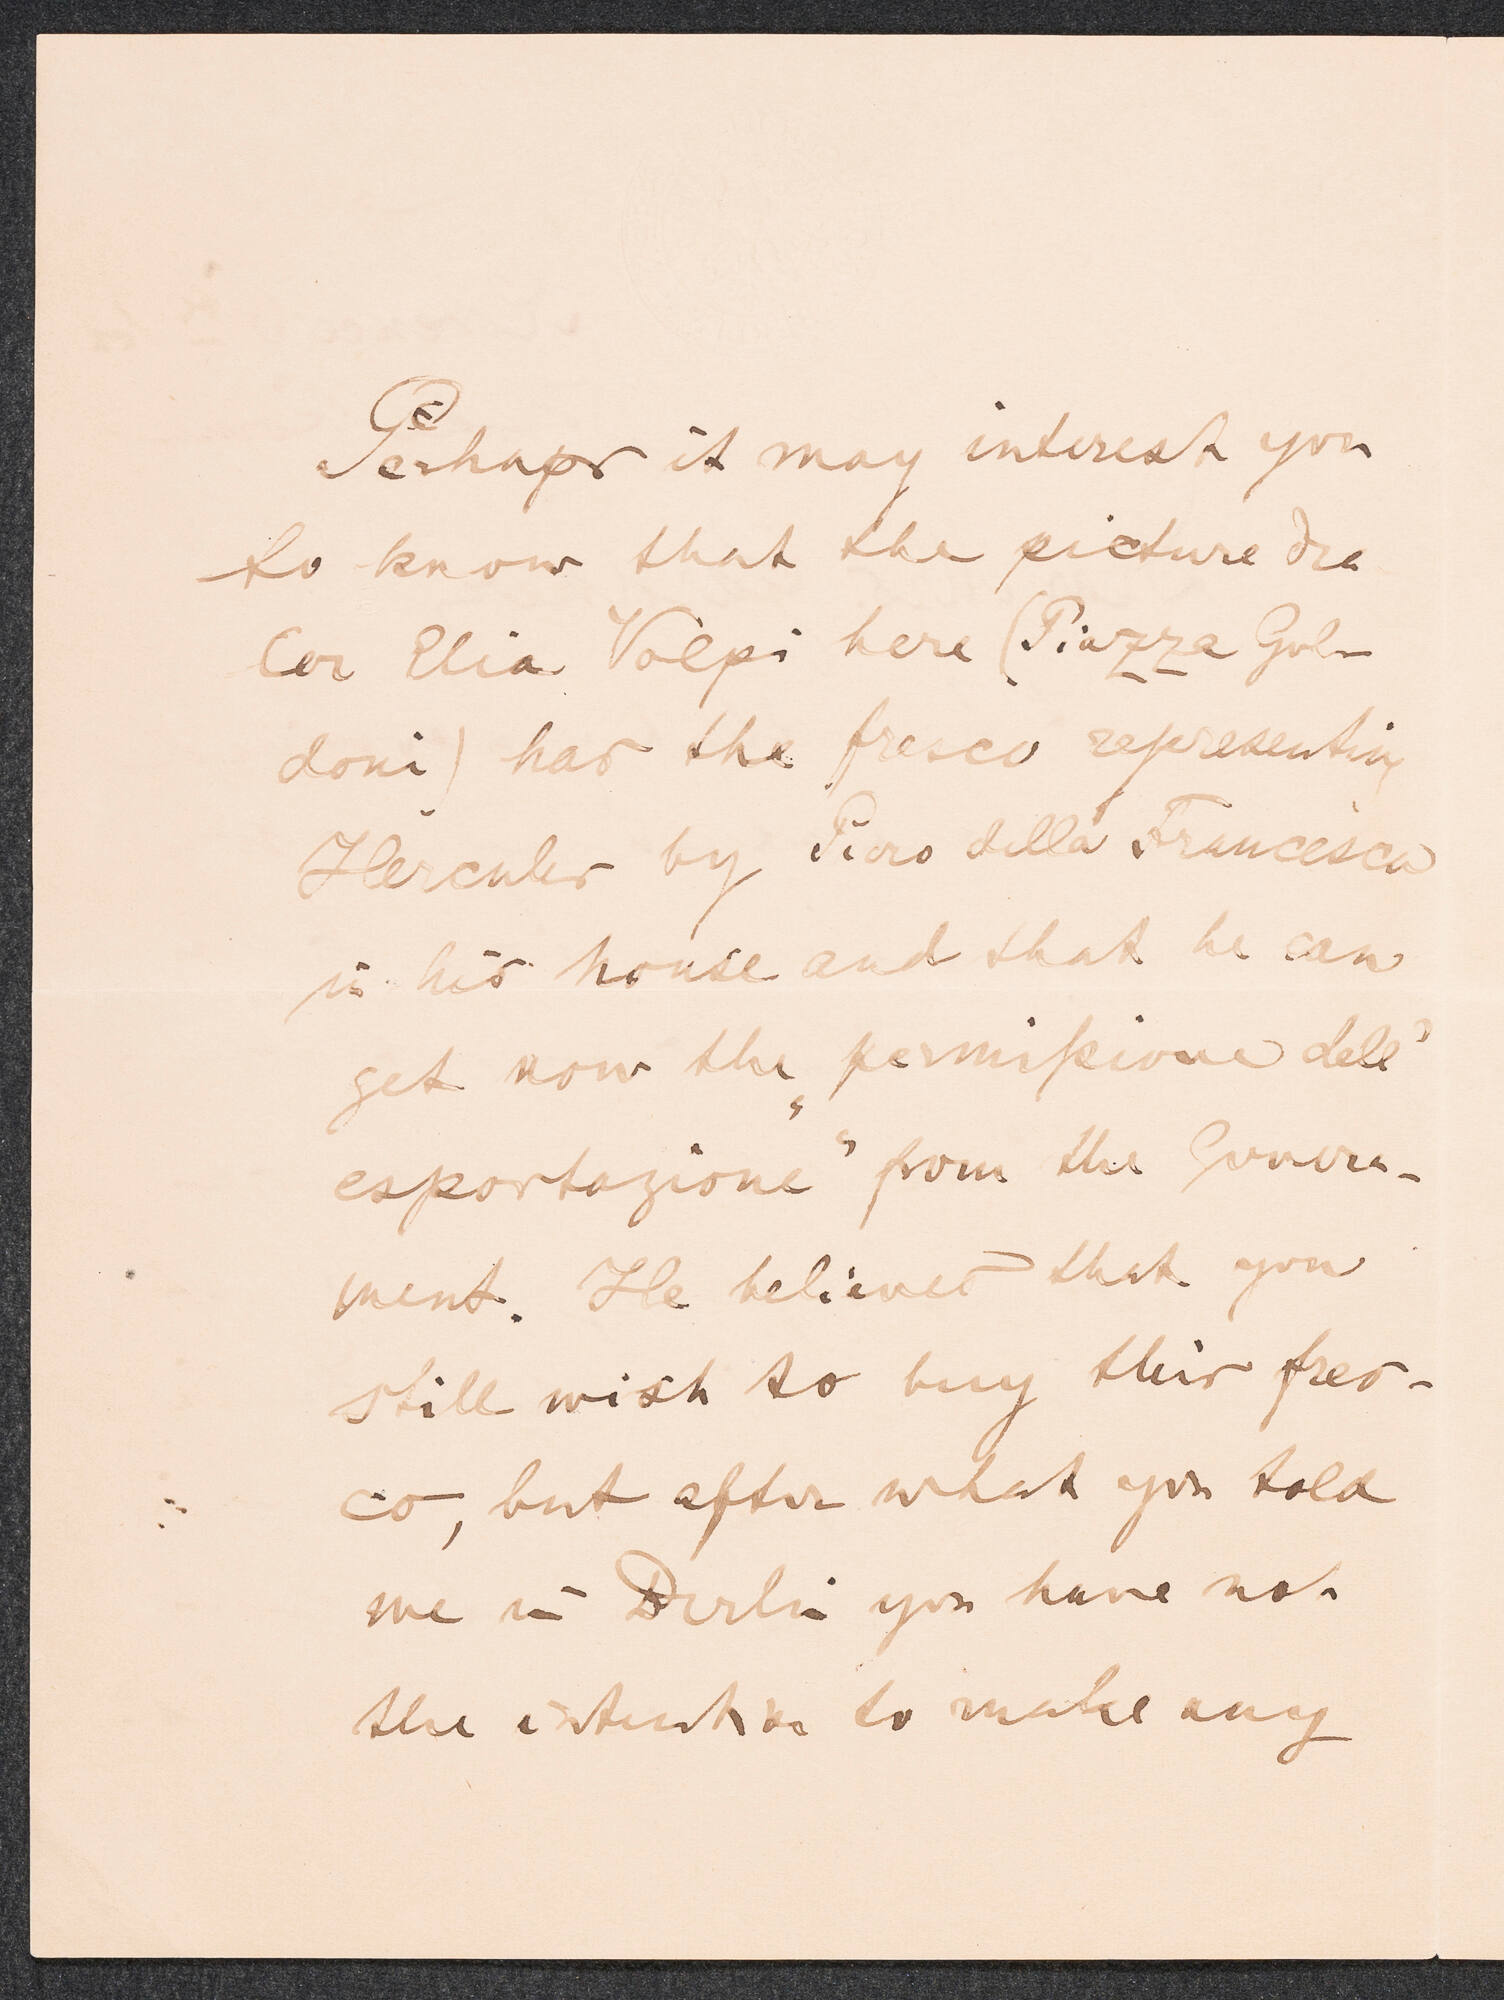 Perhaps it may interest you
to know that the picture dea
ler Elia Volpi here (Piazza Gol-
doni) has the fresco representing
Hercules by Piero della Francesca
in his house and that he can
get now the „permissione dell'
esportazione" from the Govern-
ment. He believes that you
still wish to buy this fres-
co, but after what you told
me in Berlin you have not
the intention to make any